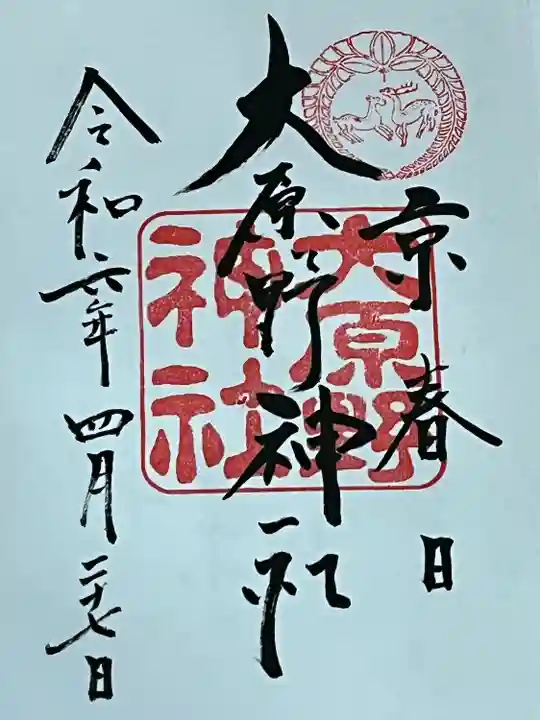 京春日
大原野神社
令和六年四月二十七日
大原野
神社